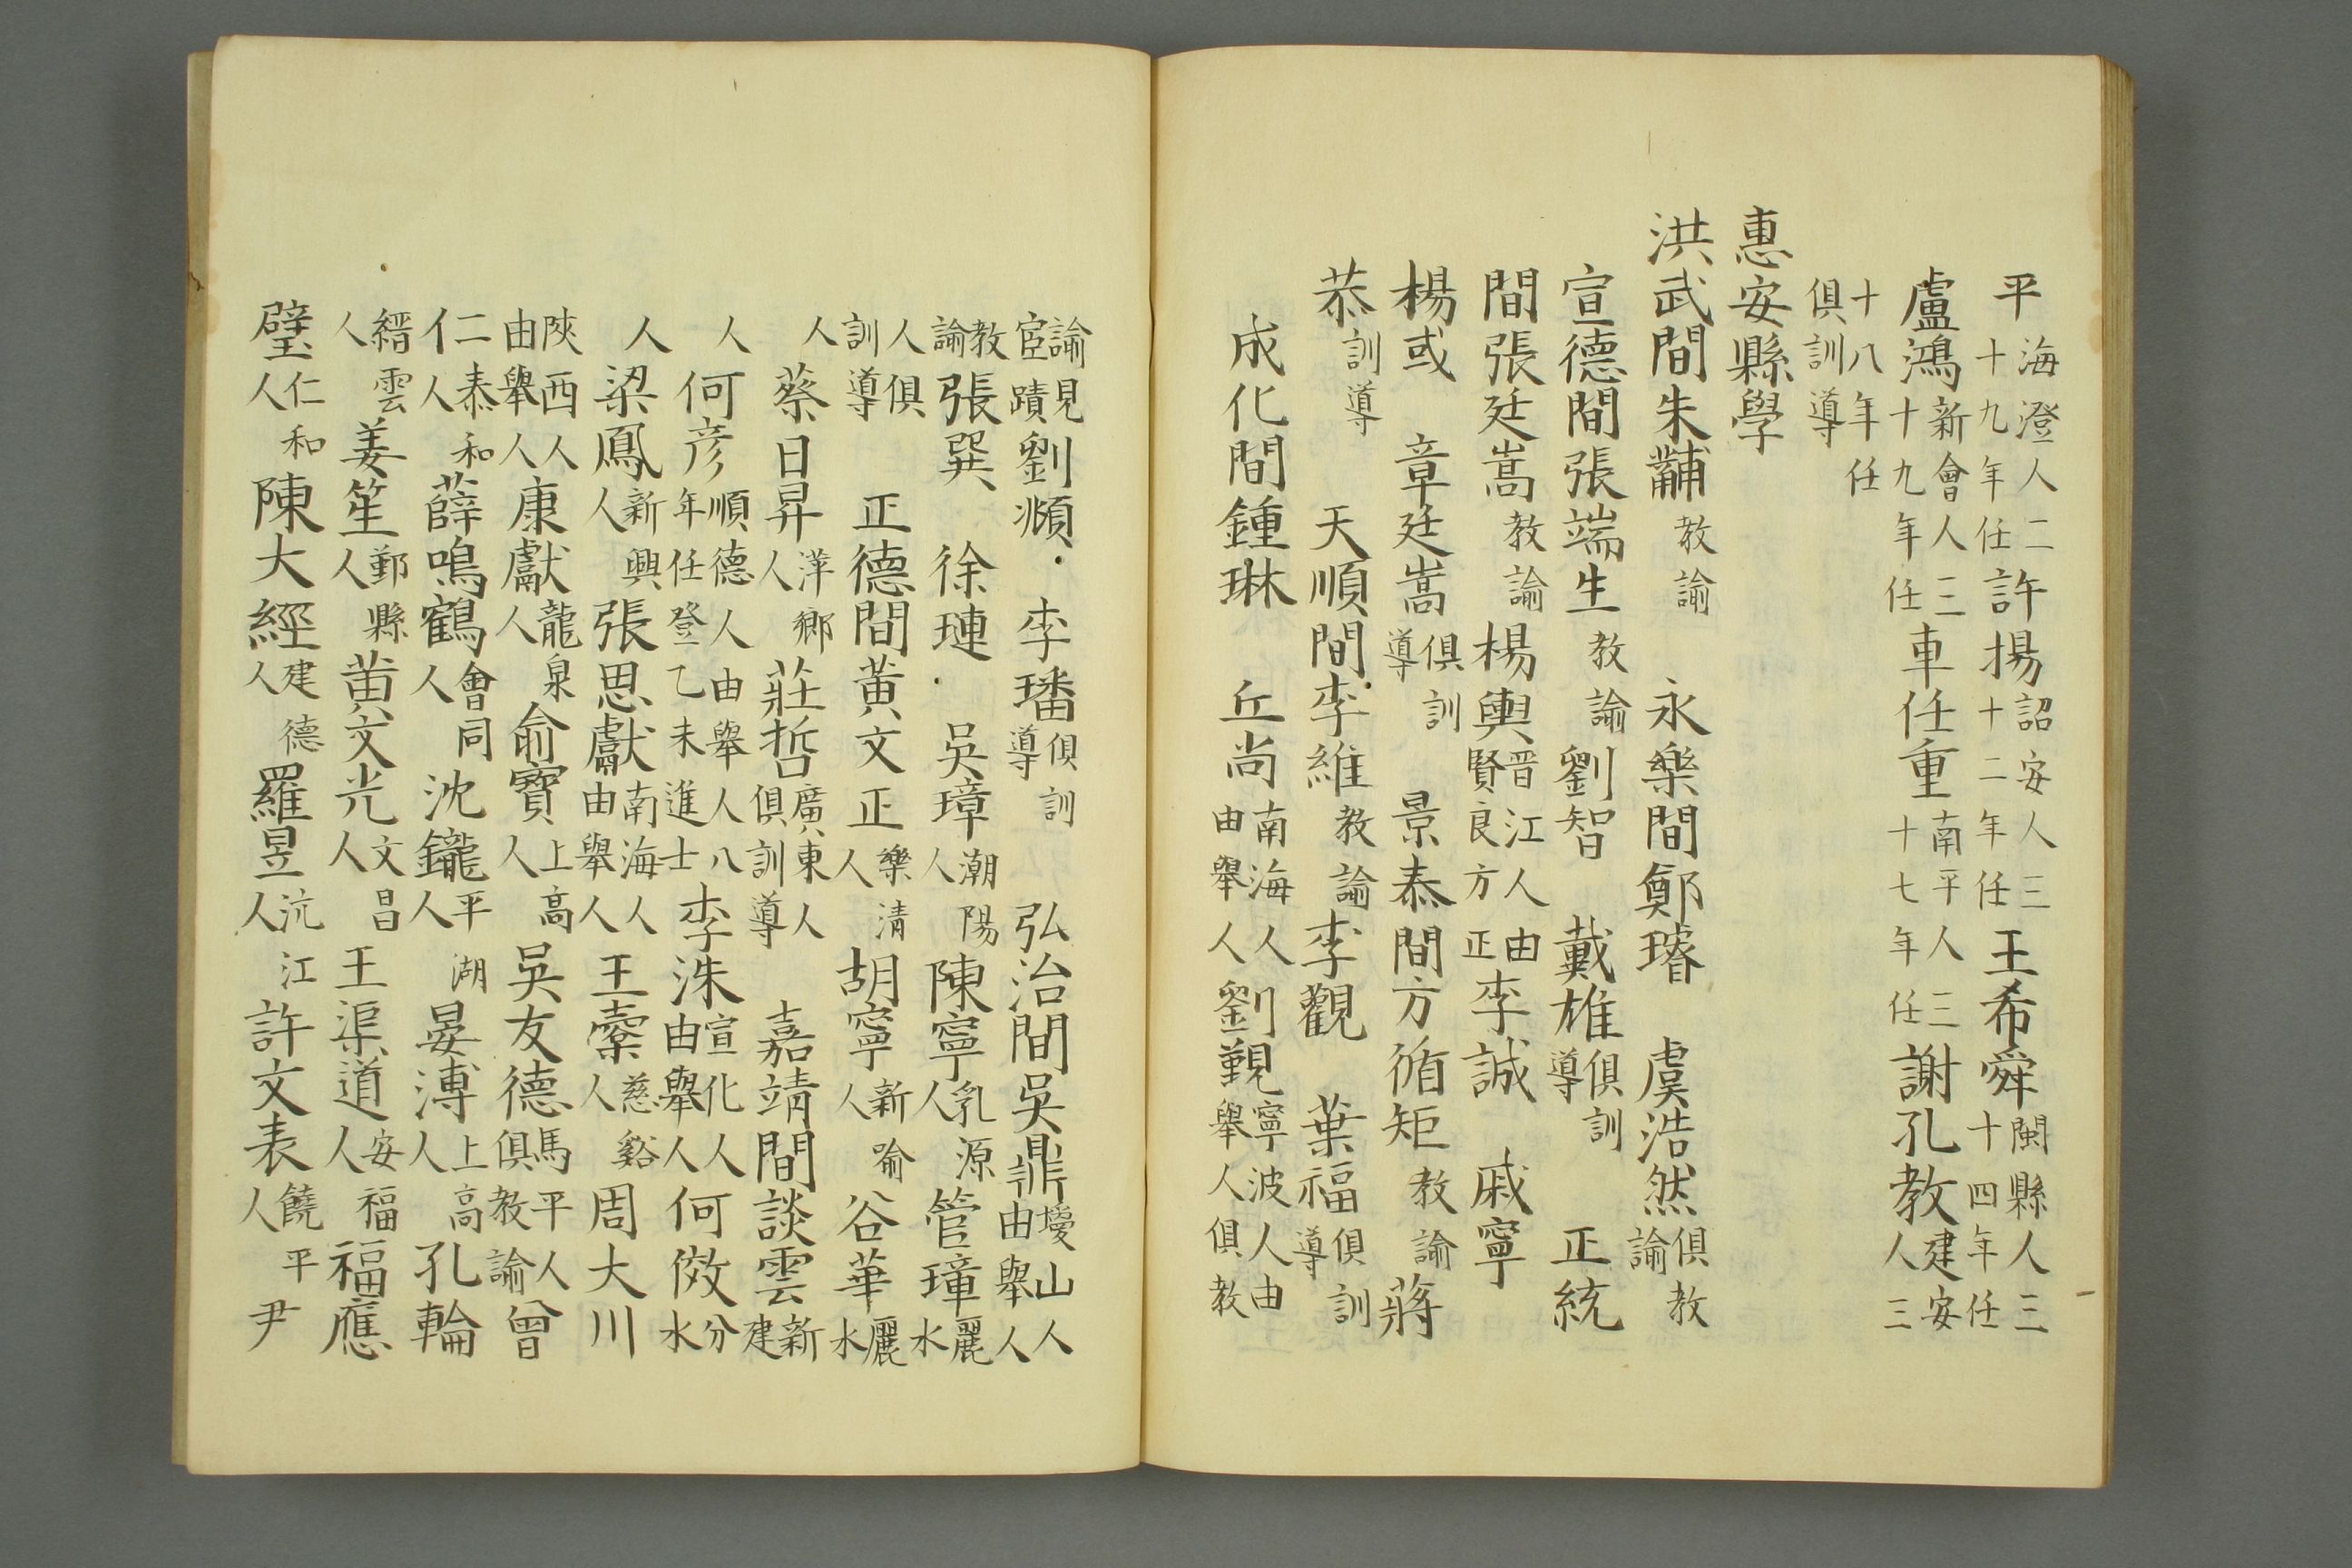 平海澄人二十九年任許揚詔安人三十二年任王希舜閩縣人三十四年任
盧鴻新會人三十九年任車任重南平人三十七年任謝孔教建安人三
十八年任俱訓導
惠安縣學
洪武間朱黼教諭 永樂間鄭璿 虞浩然俱教諭
宣德間張端生教諭劉智 戴雄俱訓導 正統
間張廷嵩教諭楊輿晋江人由賢良方正李誠 戚寧
楊或 章廷嵩俱訓導 景泰間方循矩教諭蔣
恭訓導 天順間李維教諭李觀 葉福俱訓導
成化間鍾琳 丘尚南海人由舉人劉觀寧波人由舉人俱教
諭見宦蹟劉瀕 李璠俱訓導 弘治間吳鼎璦山人由舉人
教諭張巽 徐璉 吳璋潮陽人陳寧乳源人管璋麗水
人俱訓導 正德間黃文正樂清人胡寧新喻人谷華麗水
人蔡日昇萍鄉人莊哲廣東人俱訓導 嘉靖間談雲新建
人何彦順德人由舉人八年任登乙未進士李洙宣化人由舉人何傚分水
人梁鳳新興人張思獻南海人由舉人王橐慈谿人周大川
陝西人由舉人康獻龍泉人俞寶上高人吳友德馬平人俱教諭曾
仁二泰和人薛鳴鶴會同人沈鑨平湖人晏溥上高人孔輪
縉雲人姜笙鄞縣人黄文光文昌人王渠道安福人福應
璧仁和人陳大經建德人羅昱沅江人許文表饒平人尹